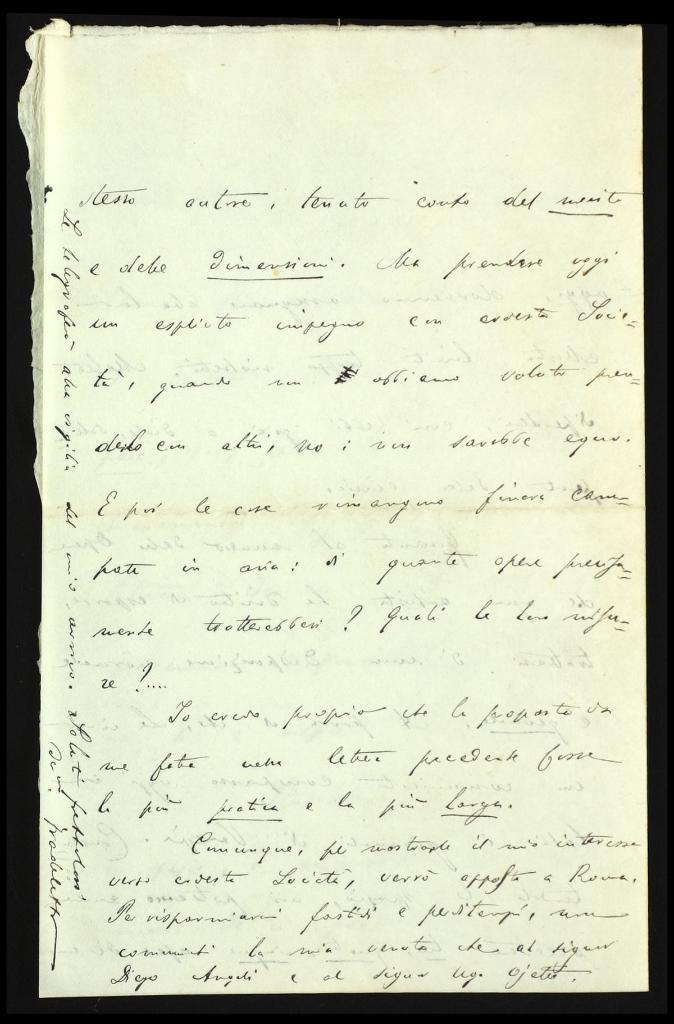 stesso autore, tenuto conto del merito
e delle dimensioni. Ma prendere oggi
un esplicito impegno con codesta Socie-
tà, quando non abbiamo voluto pren-
derlo con altri, no: non sarebbe equo.
E poi le cose rimangono finora cam-
pate in aria: di quante opere precisa-
mente tratterebbesi? Quali le loro misu-
re?....
Io credo proprio che la proposta da
me fatta nella lettera precedente fosse
la più pratica e la più larga.
Comunque, per mostrarle il mio interesse
verso codesta Società, verrò apposta a Roma.
Per risparmiarmi fastidi e perditempi, non
comunichi la mia venuta che al signor
Diego Angeli e al signor Ugo Ojetti.
Le telegraferò alla vigilia del mio arrivo. Saluti
Fradeletto